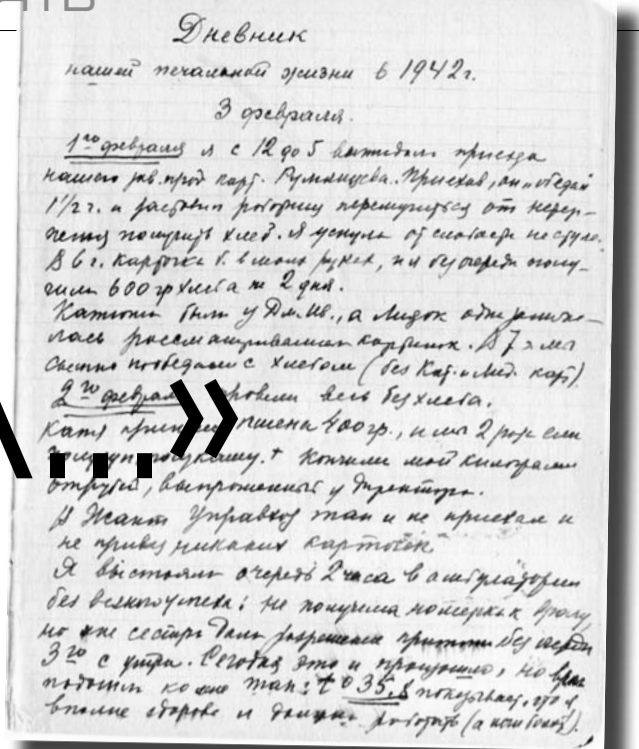 Дневник
нашей печальной жизни в 1942 г.
3 февраля.
1го февраля я с 12 до 5 выжидала приезда
нашего зав. прод. карт. Румянцева. Приехав, он "обедал"
1 1/2 г. и заставил публику перемучиться от нетер-
пения получить хлеб. Я уснула от слабости на стуле.
В 6 г. карточка б. в моих руках, и я без очереди полу-
чила 600 гр хлеба на 2 дня.
Катюша были у Дм. Ив., а Лидок одна занима-
лась рассматриванием картинок. В 7 ч мы
сытно пообедали с хлебом (без Кат. и Лид. карт).
2го февраля провели весь без хлеба.
Катя пшена 400 гр., и мы 2 раза ели
кашу. + Кончили мой килограмм
отрубей, выпрошенный у директора.
В Жакт Управхоз так и не приехал и
не привез никаких карточек.
Я выстояла очередь 2 часа в амбулатории
без всякого успеха: не получила номерка к врачу,
но мне сестра дала разрешение без очереди
3го с утра. Сегодня это и произошло, но врач
подошел ко мне так: t° 35,8 показывает, что я
вполне здорова и должна работать (а ноги болят!).
А...»